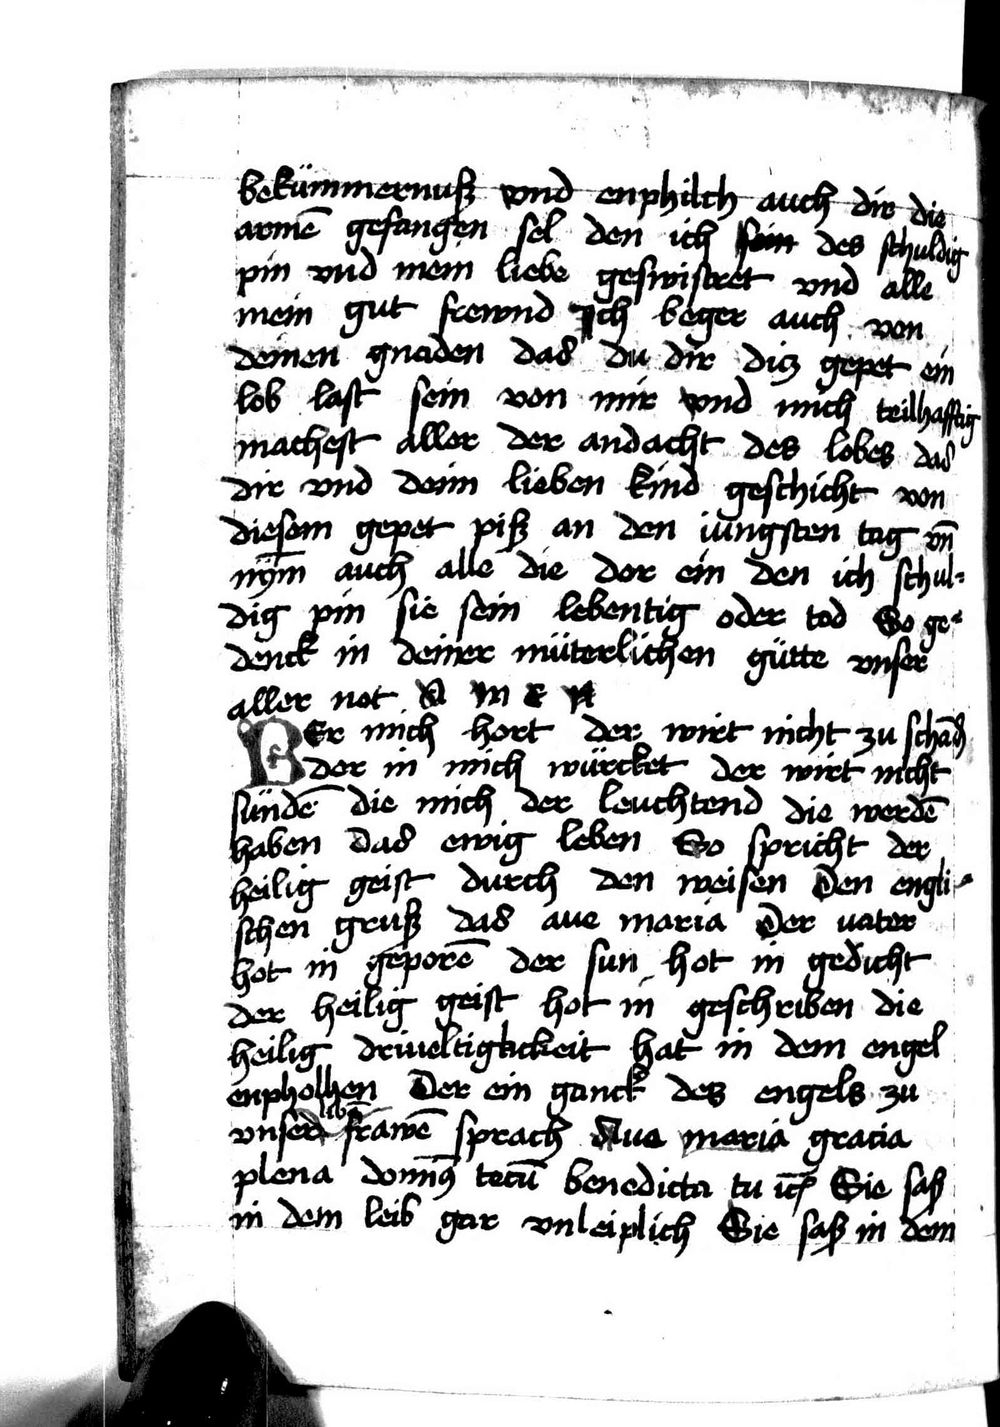 bekümmernuß vnd enphilch auch dir die
armē gefangen sel den ich sein des schuldig
pin vnd mein liebe geswistret vnd alle
mein gut frewnd Ich beger auch von
deinen gnaden das du dir dicz gepet ein
lob last sein von mir vnd mich teilhafftig
machest aller der andacht des lobes das
dir vnd deim lieben kind geschicht von
diesem gepet piß an den iungsten tag vn̄
nym̄ auch alle die der ein den ich schul⸗
dig pin sie sein lebentig oder tod So ge⸗
denck in deiner müterlichen gütte vnser
aller not A M E N
WEr mich hort der wirt nicht zu schād
der in mich würcket der wirt nicht
sündē die mich der leuchtend die werdē
haben das ewig leben So spricht der
heilig geist durch den weisen Den engli⸗
schen gruß das aue maria Der vater
hot in geporē der sun hot in gedicht
der heilig geist hot in geschriben die
heilig driueltigkckeit hat in dem engel
enpholhen Der ein ganck des engels zu
vnser libē frawē sprach Aue maria gracia
plena domin9 tecū benedicta tu ic̄ Sie saß
in dem leib gar vnleiplich Sie saß in dem